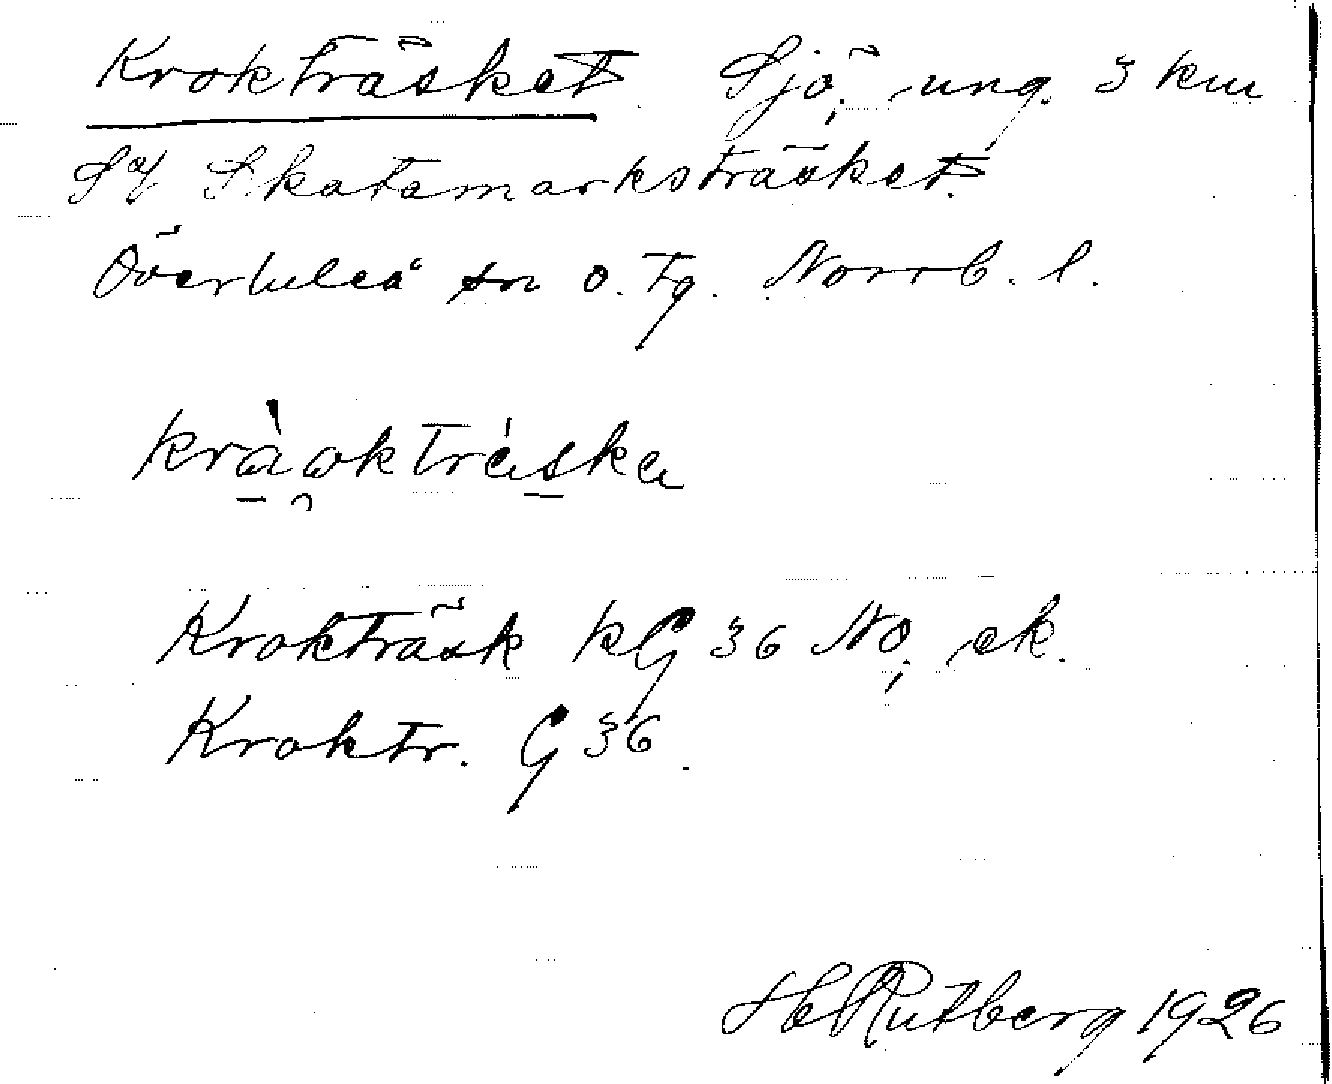 Krokträsket. Sjö, ung. 3 km
S om Skatamarksträsket.
Överluleå sn o. tg. Norrb. l.
kràokträska
Krokträsk kG 36 NO, ek.
Kroktr. G 36.
H Rutberg 1926